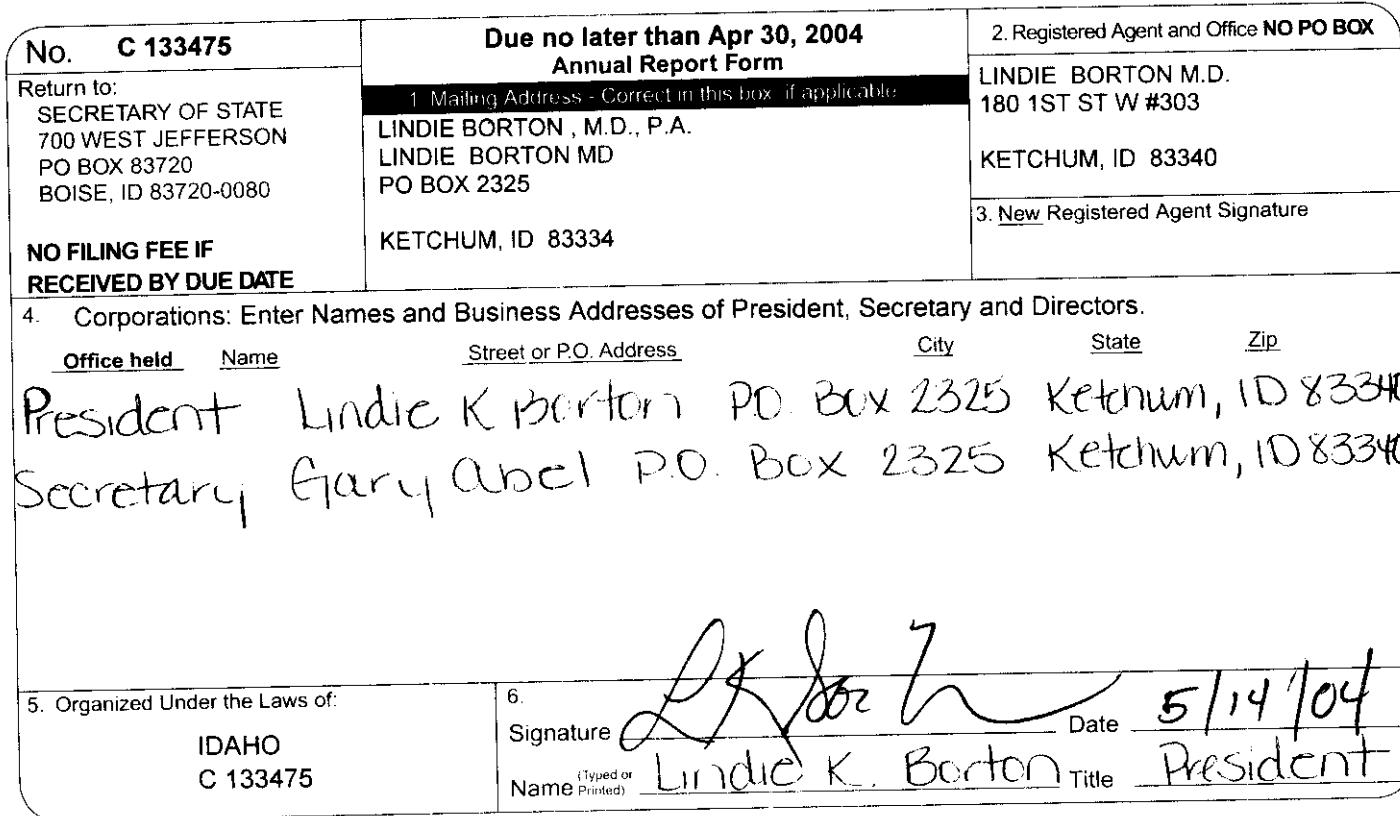 No. C 133475
Return to:
SECRETARY OF STATE
700 WEST JEFFERSON
PO BOX 83720
BOISE, ID 83720-0080
NO FILING FEE IF
RECEIVED BY DUE DATE
Due no later than Apr 30, 2004
Annual Report Form
1 Mailing Address - Correct in this box if applicable
LINDIE BORTON , M.D., P.A.
LINDIE BORTON MD
PO BOX 2325
KETCHUM, ID 83334
2. Registered Agent and Office NO PO BOX
LINDIE BORTON M.D.
180 1ST ST W #303
KETCHUM, ID 83340
3. New Registered Agent Signature
4. Corporations: Enter Names and Business Addresses of President, Secretary and Directors.
Office held Name Street or P.O. Address City State Zip
President Lindie K Borton PO Box 2325 Ketchum, ID 83340
Secretary Gary Abel P.O. Box 2325 Ketchum, ID 83340
5. Organized Under the Laws of:
IDAHO
C 133475
6.
Signature LK Borton Date 5/14/04
Name (Typed or Printed) Lindie K. Borton Title President